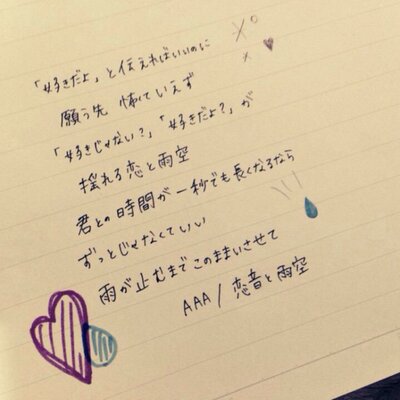 「好きだよ」と伝えればいいのに
願う先 怖くていえず
「好きじゃない?」「好きだよ?」が
揺れる恋と雨空
君との時間が一秒でも長くなるなら
ずっとじゃなくていい
雨が止むまでこのままいさせて
AAA/恋音と雨空